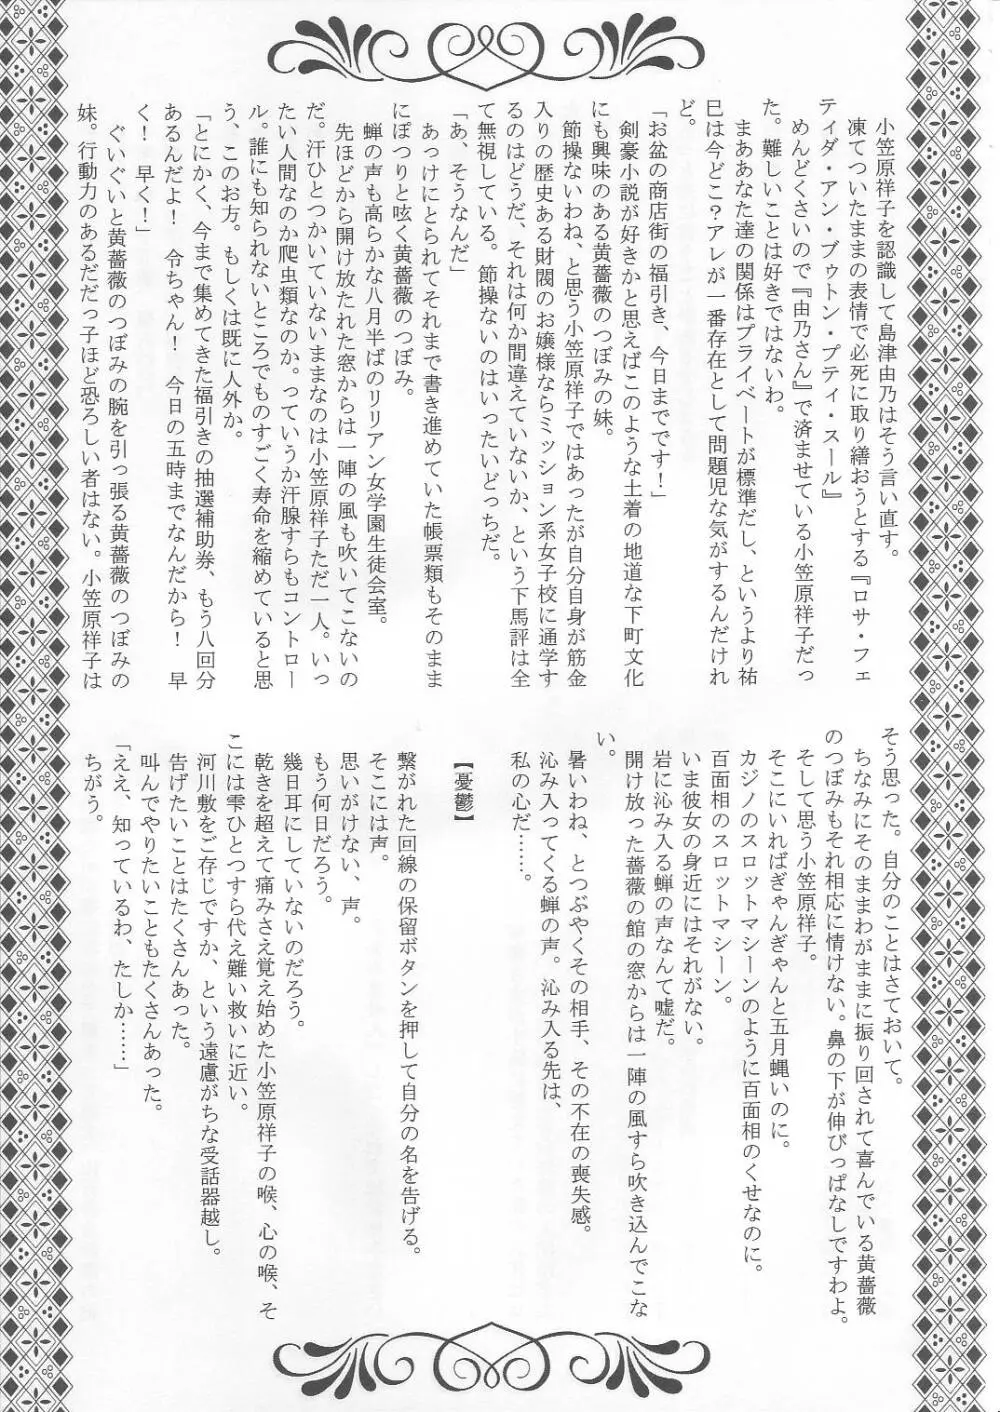 小笠原祥子を認識して島津由乃はそう言い直す。
凍てついたままの表情で必死に取り繕おうとする『ロサ・フェ
ティダ・アン・ブゥトン・プティ・スール』
めんどくさいので『由乃さん』で済ませている小笠原祥子だっ
た。難しいことは好きではないわ。
まああなた達の関係はプライベートが標準だし、というより祐
巳は今どこ？アレが一番存在として問題児な気がするんだけれ
ど。
「お盆の商店街の福引き、今日までです！」
剣豪小説が好きかと思えばこのような土着の地道な下町文化
にも興味のある黄薔薇のつぼみの妹。
節操ないわね、と思う小笠原祥子ではあったが自分自身が筋金
入りの歴史ある財閥のお嬢様ならミッション系女子校に通学す
るのはどうだ、それは何か間違えていないか、という下馬評は全
て無視している。節操ないのはいったいどっちだ。
「あ、そうなんだ」
あっけにとられてそれまで書き進めていた帳票類もそのまま
にぽつりと呟く黄薔薇のつぼみ。
蝉の声も高らかな八月半ばのリリアン女学園生徒会室。
先ほどから開け放たれた窓からは一陣の風も吹いてこないの
だ。汗ひとつかいていないままなのは小笠原祥子ただ一人。いっ
たい人間なのか爬虫類なのか。っていうか汗腺すらもコントロー
ル。誰にも知られないところでものすごく寿命を縮めていると思
う、このお方。もしくは既に人外か。
「とにかく、今まで集めてきた福引きの抽選補助券、もう八回分
あるんだよ！　令ちゃん！　今日の五時までなんだから！　早
く！　早く！」
ぐいぐいと黄薔薇のつぼみの腕を引っ張る黄薔薇のつぼみの
妹。行動力のあるだだっ子ほど恐ろしい者はない。小笠原祥子は
そう思った。自分のことはさておいて。
ちなみにそのままわがままに振り回されて喜んでいる黄薔薇
のつぼみもそれ相応に情けない。鼻の下が伸びっぱなしですわよ。
そして思う小笠原祥子。
そこにいればぎゃんぎゃんと五月蝿いのに。
カジノのスロットマシーンのように百面相のくせなのに。
百面相のスロットマシーン。
いま彼女の身近にはそれがない。
岩に沁み入る蝉の声なんて嘘だ。
開け放った薔薇の館の窓からは一陣の風すら吹き込んでこな
い。
暑いわね、とつぶやくその相手、その不在の喪失感。
沁み入ってくる蝉の声。沁み入る先は、
私の心だ……。
【憂鬱】
繋がれた回線の保留ボタンを押して自分の名を告げる。
そこには声。
思いがけない、声。
もう何日だろう。
幾日耳にしていないのだろう。
乾きを超えて痛みさえ覚え始めた小笠原祥子の喉、心の喉、そ
こには雫ひとつすら代え難い救いに近い。
河川敷をご存じですか、という遠慮がちな受話器越し。
告げたいことはたくさんあった。
叫んでやりたいこともたくさんあった。
「ええ、知っているわ、たしか……」
ちがう。